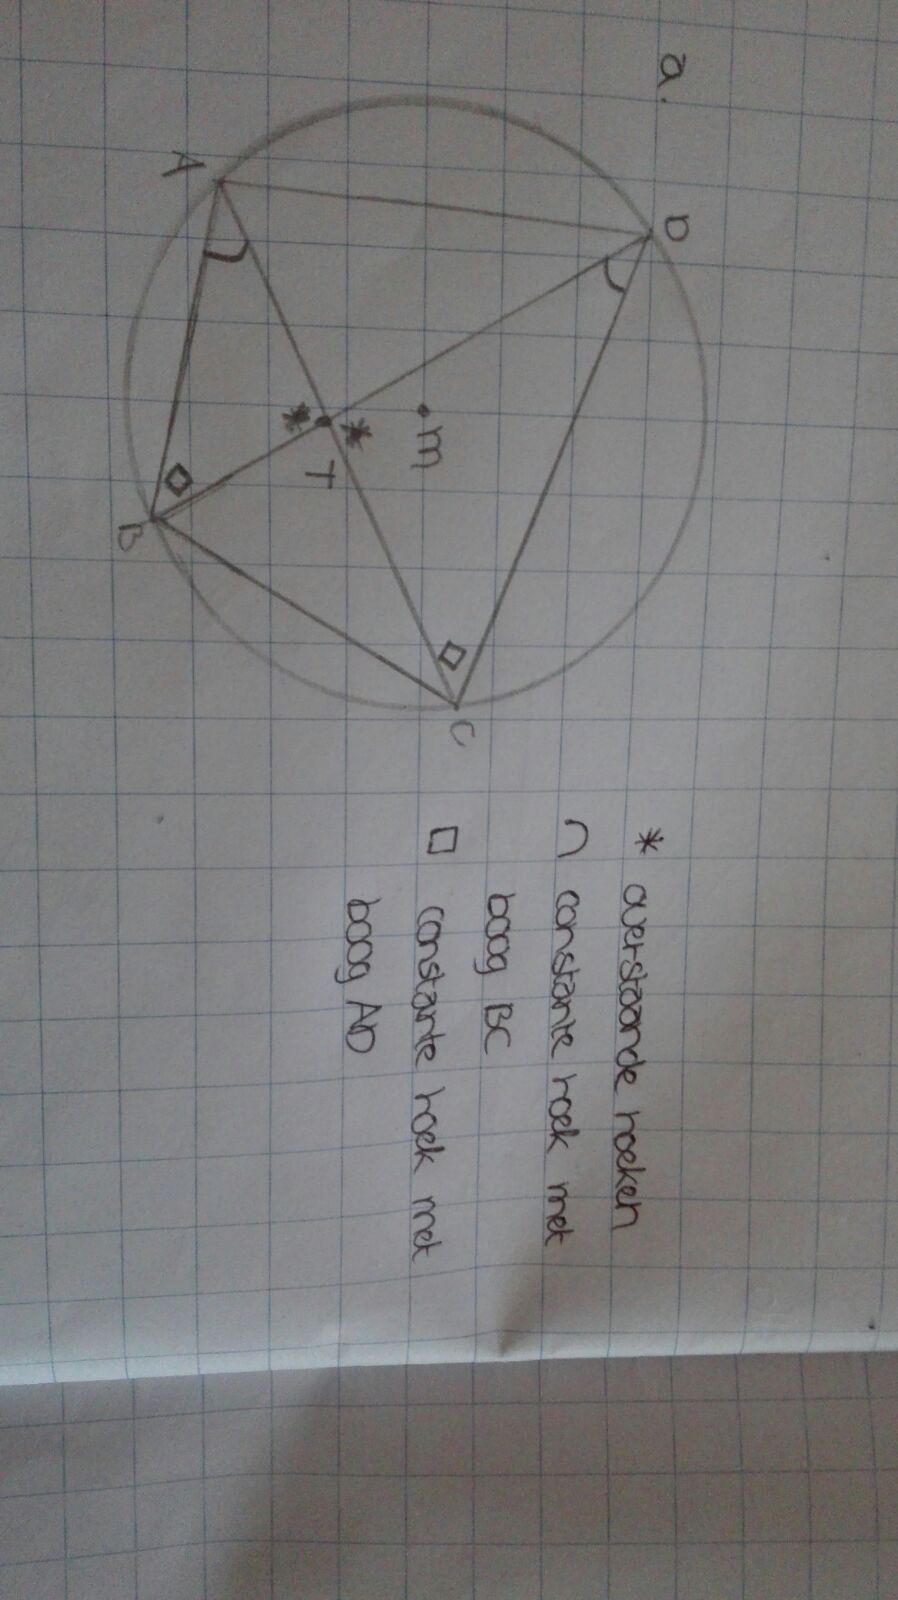 a.
D
A
m
T
B
C
* overstaande hoeken
constante hoek met
boog BC
constante hoek met
boog AD